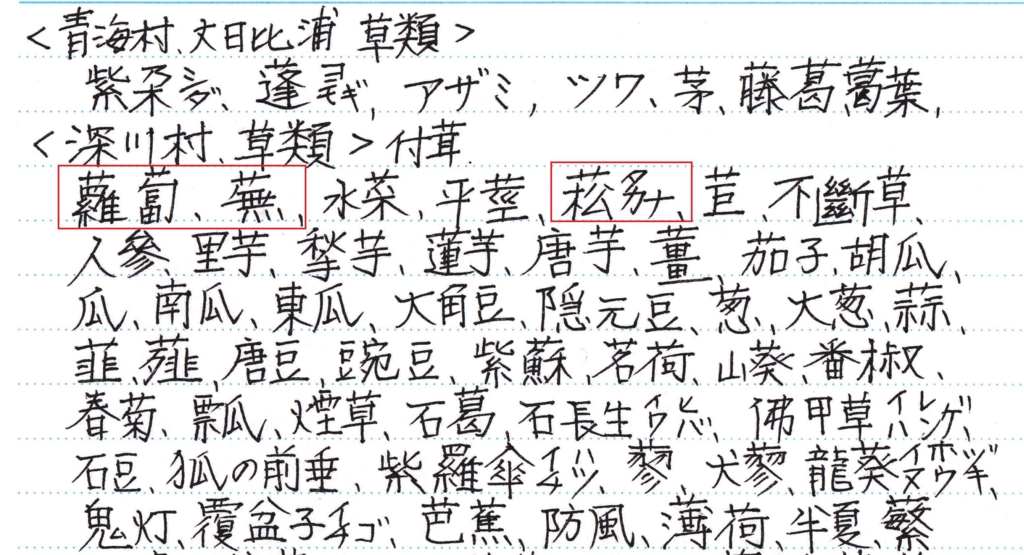 <青海村、文日比浦 草類>
紫朶シダ、蓬ヨモギ、アザミ、ツワ、茅、藤葛葛葉、
<深川村、草類>付茸
蘿蔔、蕪、水菜、平莖、菘タカナ、苣、不斷草、
人參、里芋、芋、蓮芋、唐芋、薑、茄子、胡瓜、
瓜、南瓜、東瓜、大角豆、隠元豆、葱、大葱、蒜、
韮、薤、唐豆、豌豆、紫蘇、茗荷、山葵、番椒、
春菊、瓢瓜、煙草、石葛、石長生、佛甲草
石豆、狐の前垂、紫羅傘、蓼、犬蓼、龍葵
鬼灯、覆盆子イチゴ、芭蕉、防風、薄荷、半夏、繁